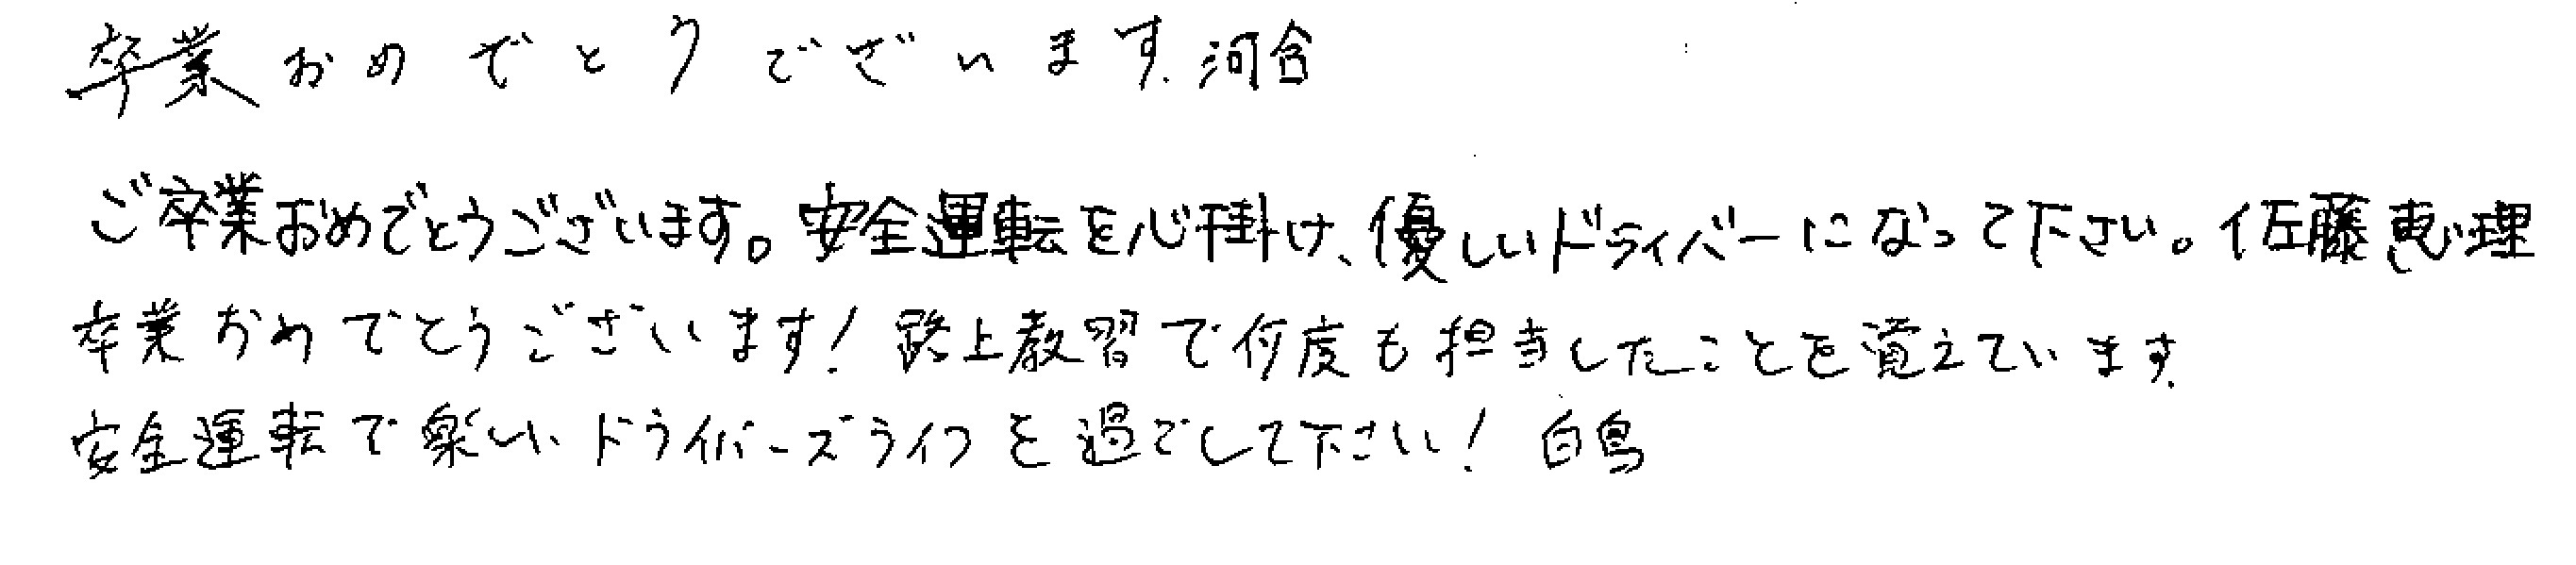 卒業おめでとうございます.河合
ご卒業おめでとうございます。安全運転を心掛け、優しいドライバーになって下さい。佐藤恵理
卒業おめでとうございます!路上教習で何度も担当したことを覚えています.
安全運転で楽しいドライバーズライフを過ごして下さい!白鳥